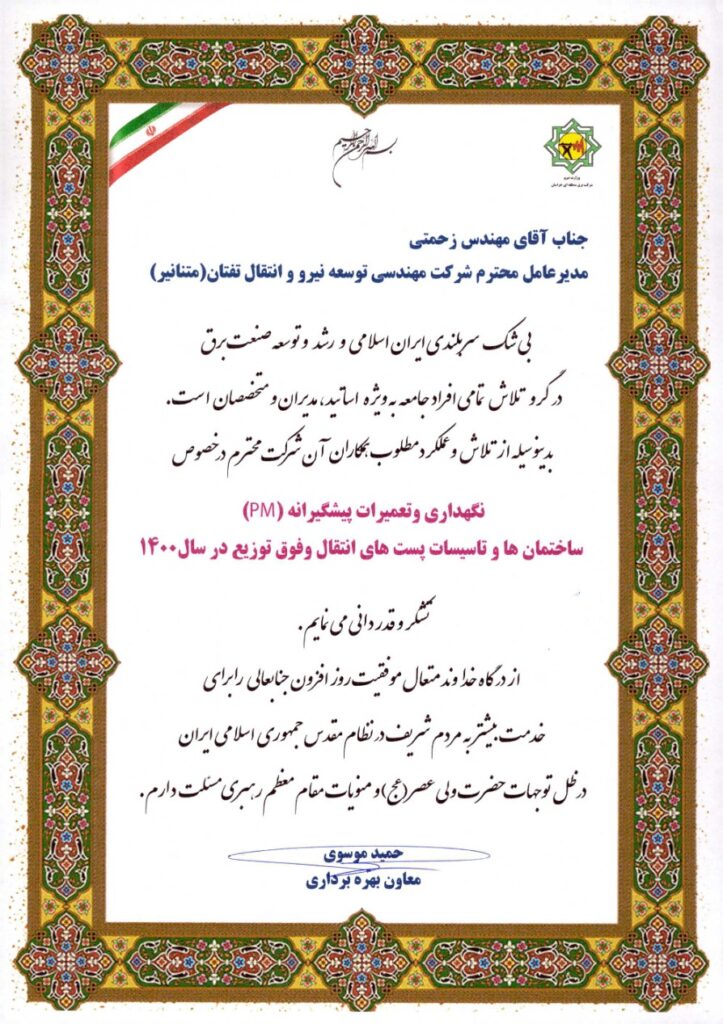 بسم الله الرحمن الرحیم
وزارت نیرو
شرکت برق منطقه ای خراسان
جناب آقای مهندس زحمتی
مدیرعامل محترم شرکت مهندسی توسعه نیرو و انتقال تفتان(متنانیر)
بی شک سربلندی ایران اسلامی و رشد و توسعه صنعت برق
در گرو تلاش تمامی افراد جامعه به ویژه اساتید، مدیران و متخصصان است.
بدینوسیله از تلاش و عملکرد مطلوب همکاران آن شرکت محترم درخصوص
نگهداری وتعمیرات پیشگیرانه (PM)
ساختمان ها و تاسیسات پست های انتقال وفوق توزیع در سال۱۴۰۰
تشکر و قدردانی می نمایم.
از درگاه خداوند متعال موفقیت روز افزون جنابعالی را برای
خدمت بیشتر به مردم شریف در نظام مقدس جمهوری اسلامی ایران
در ظل توجهات حضرت ولی عصر(عج) و منویات مقام معظم رهبری مسئلت دارم.
حمید موسوی
معاون بهره برداری